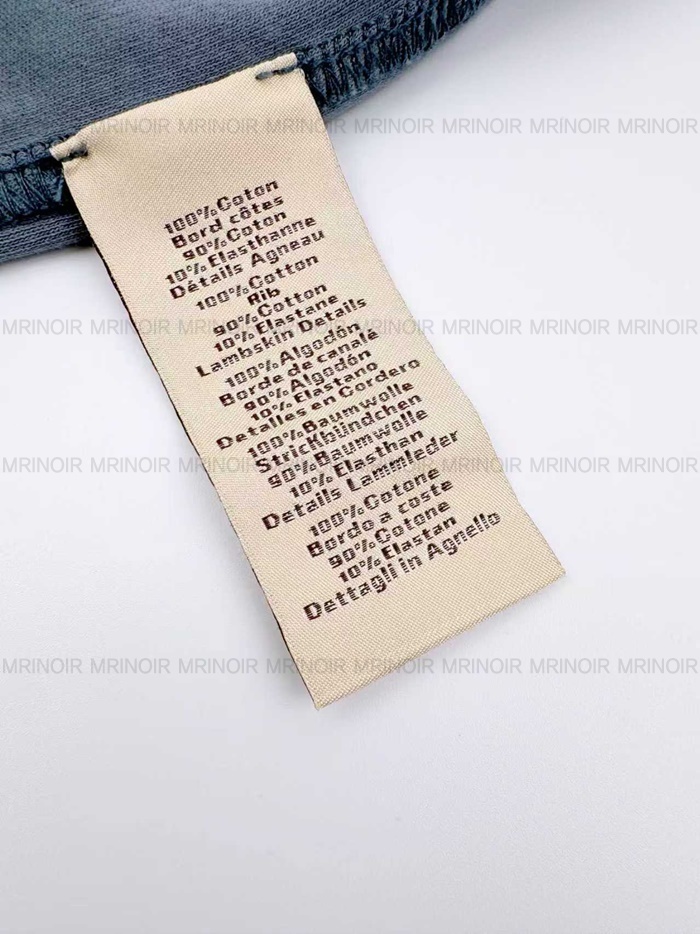 MRINOIR MRINOIR MRINOIR MRINOIR MRINOIR MRINOIR MRINOIR MRINOIR
100% Coton
Bord côtes
90% Coton
10% Elasthanne
Détails Agneau
100% Cotton
Rib
90% Cotton
10% Elastane
Lambskin Details
MRINOIR MRINOIR MRINOIR MRINOIR MRINOIR MRINOIR MRINOIR MRINOIR
100% Algodón
Borde de canalé
90% Algodón
10% Elastano
Detalles en Cordero
100% Baumwolle
Strickbündchen
90% Baumwolle
10% Elasthan
Details Lammleder
MRINOIR MRINOIR MRINOIR MRINOIR MRINOIR MRINOIR MRINOIR MRINOIR
100% Cotone
Bordo a coste
90% Cotone
10% Elastan
Dettagli in Agnello
MRINOIR MRINOIR MRINOIR MRINOIR MRINOIR MRINOIR MRINOIR MRINOIR